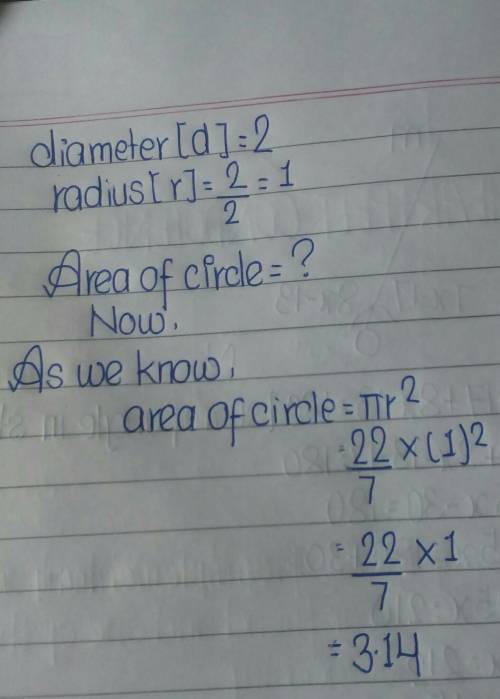 diameter[d]=2
radius[r]=2/2=1
Area of circle=?
Now,
As we know,
area of circle=πr²
=22/7×(1)²
=22/7×1
=3.14